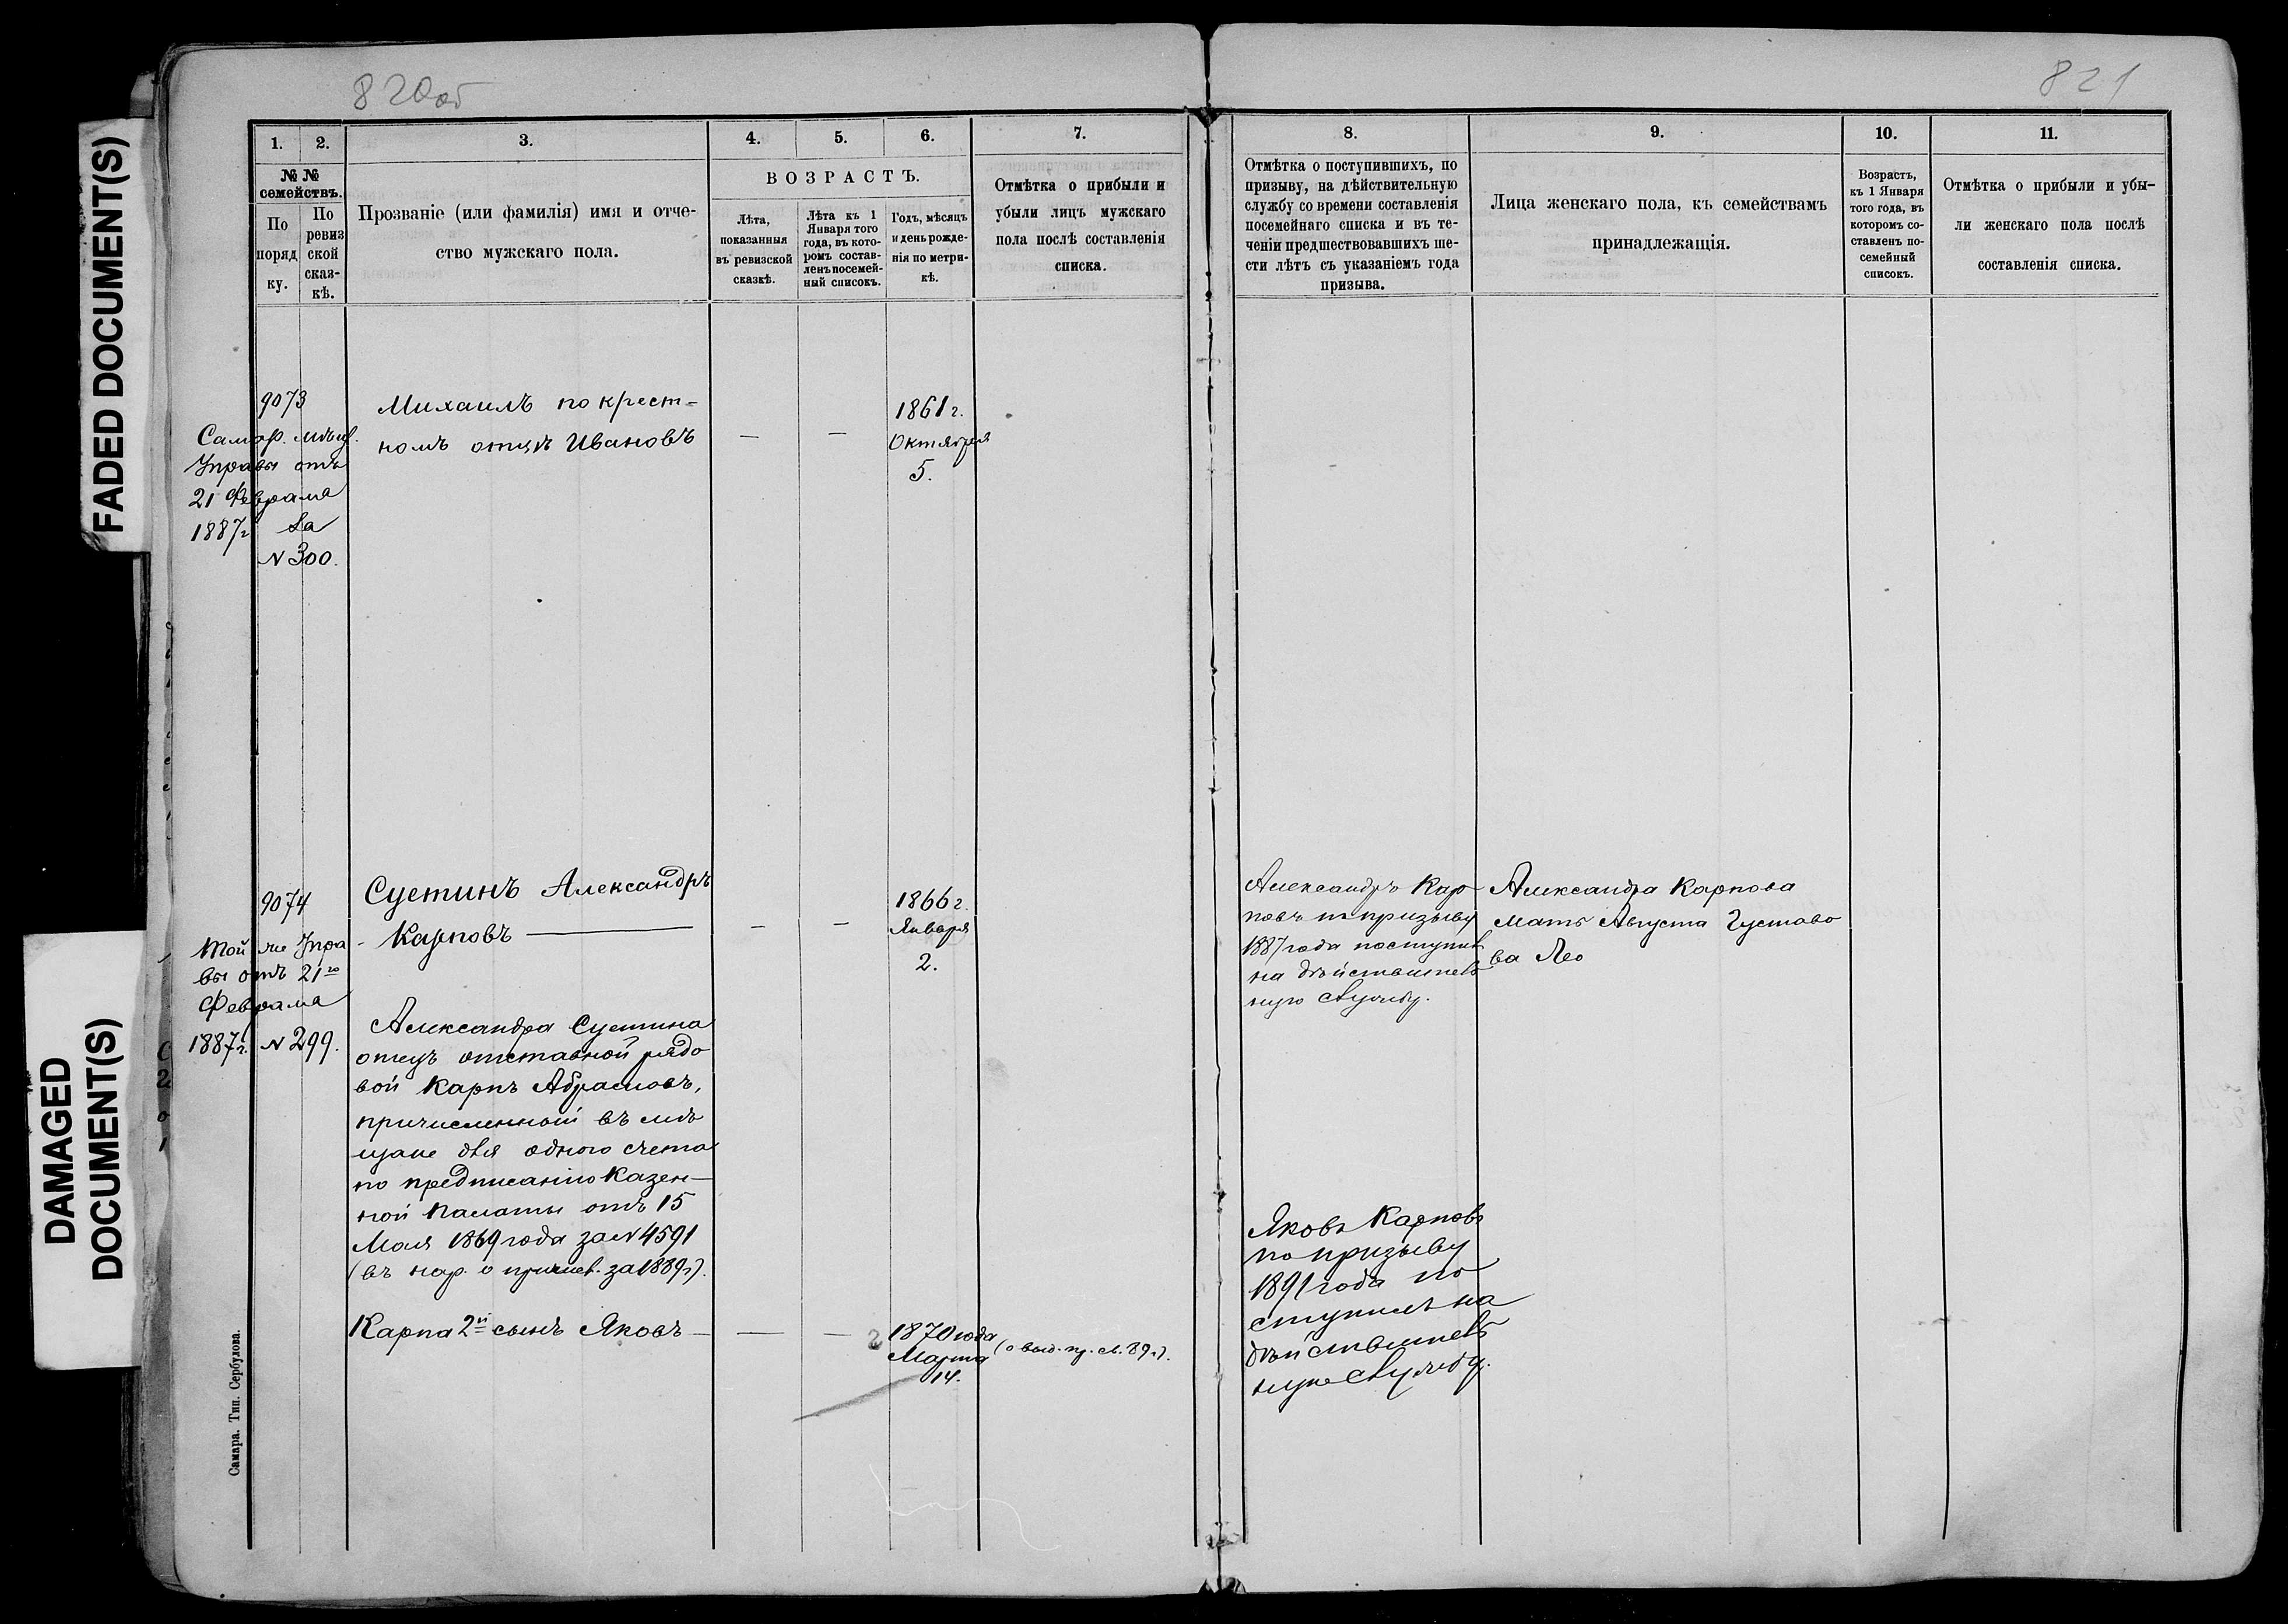 820об
821
FADED DOCUMENT(S)
DAMAGED
DOCUMENT(S)
1.
2.
3.
4.
5.
6.
7.
8.
9.
10.
11.
№ №
семействъ.
По
поряд
ку.
По
ревиз
ской
сказ-
кѣ.
Прозваніе (или фамилія) имя и отче-
ство мужскаго пола.
ВОЗРАСТЪ.
Лѣта,
показанныя
въ ревизской
сказкѣ.
Лѣта къ 1
Января того
года, въ кото-
ромъ состав-
ленъ посемей-
ный списокъ.
Годъ, мѣсяцъ
и день рожде-
нія по метри-
кѣ.
Отмѣтка о прибыли и
убыли лицъ мужскаго
пола послѣ составленія
списка.
Отмѣтка о поступившихъ, по
призыву, на дѣйствительную
службу со времени составленія
посемейнаго списка и въ те-
ченіи предшествовавшихъ ше-
сти лѣтъ съ указаніемъ года
призыва.
Лица женскаго пола, къ семействамъ
принадлежащія.
Возрастъ,
къ 1 Января
того года, въ
которомъ со-
ставленъ по-
семейный
списокъ.
Отмѣтка о прибыли и убы-
ли женскаго пола послѣ
составленія списка.
9073
Самар. мѣщ.
Управы отъ
21 Февраля
1887г. за
№ 300.
Михаилъ по крест-
номъ отцѣ Ивановъ
— —
1861 г.
Октября
5.
9074
Той же Упра
вы отъ 21го
Февраля
1887г. № 299.
Суетинъ Александръ
Карповъ —
— —
1866 г.
Января
2.
Александра Суетина
отецъ отставной рядо
вой Карпъ Абрамовъ,
причисленный въ мѣ
щане для одного счета
по предписанію Казен-
ной Палаты отъ 15
Мая 1869 года за № 4591
(въ нар. о причисл. за 1889 г.).
Карпа 2й сынъ Яковъ —
— —
2
1870 года
Марта
14.
Александръ Кар
повъ по призыву
1887 года поступил
на дѣйствител
ную службу.
Яковъ Карповъ
по призыву
1891 года по
ступилъ на
дѣйствител
ную службу.
Александра Карпова
мать Августа Густаво
ва Лео
Самара. Тип. Сербулова.